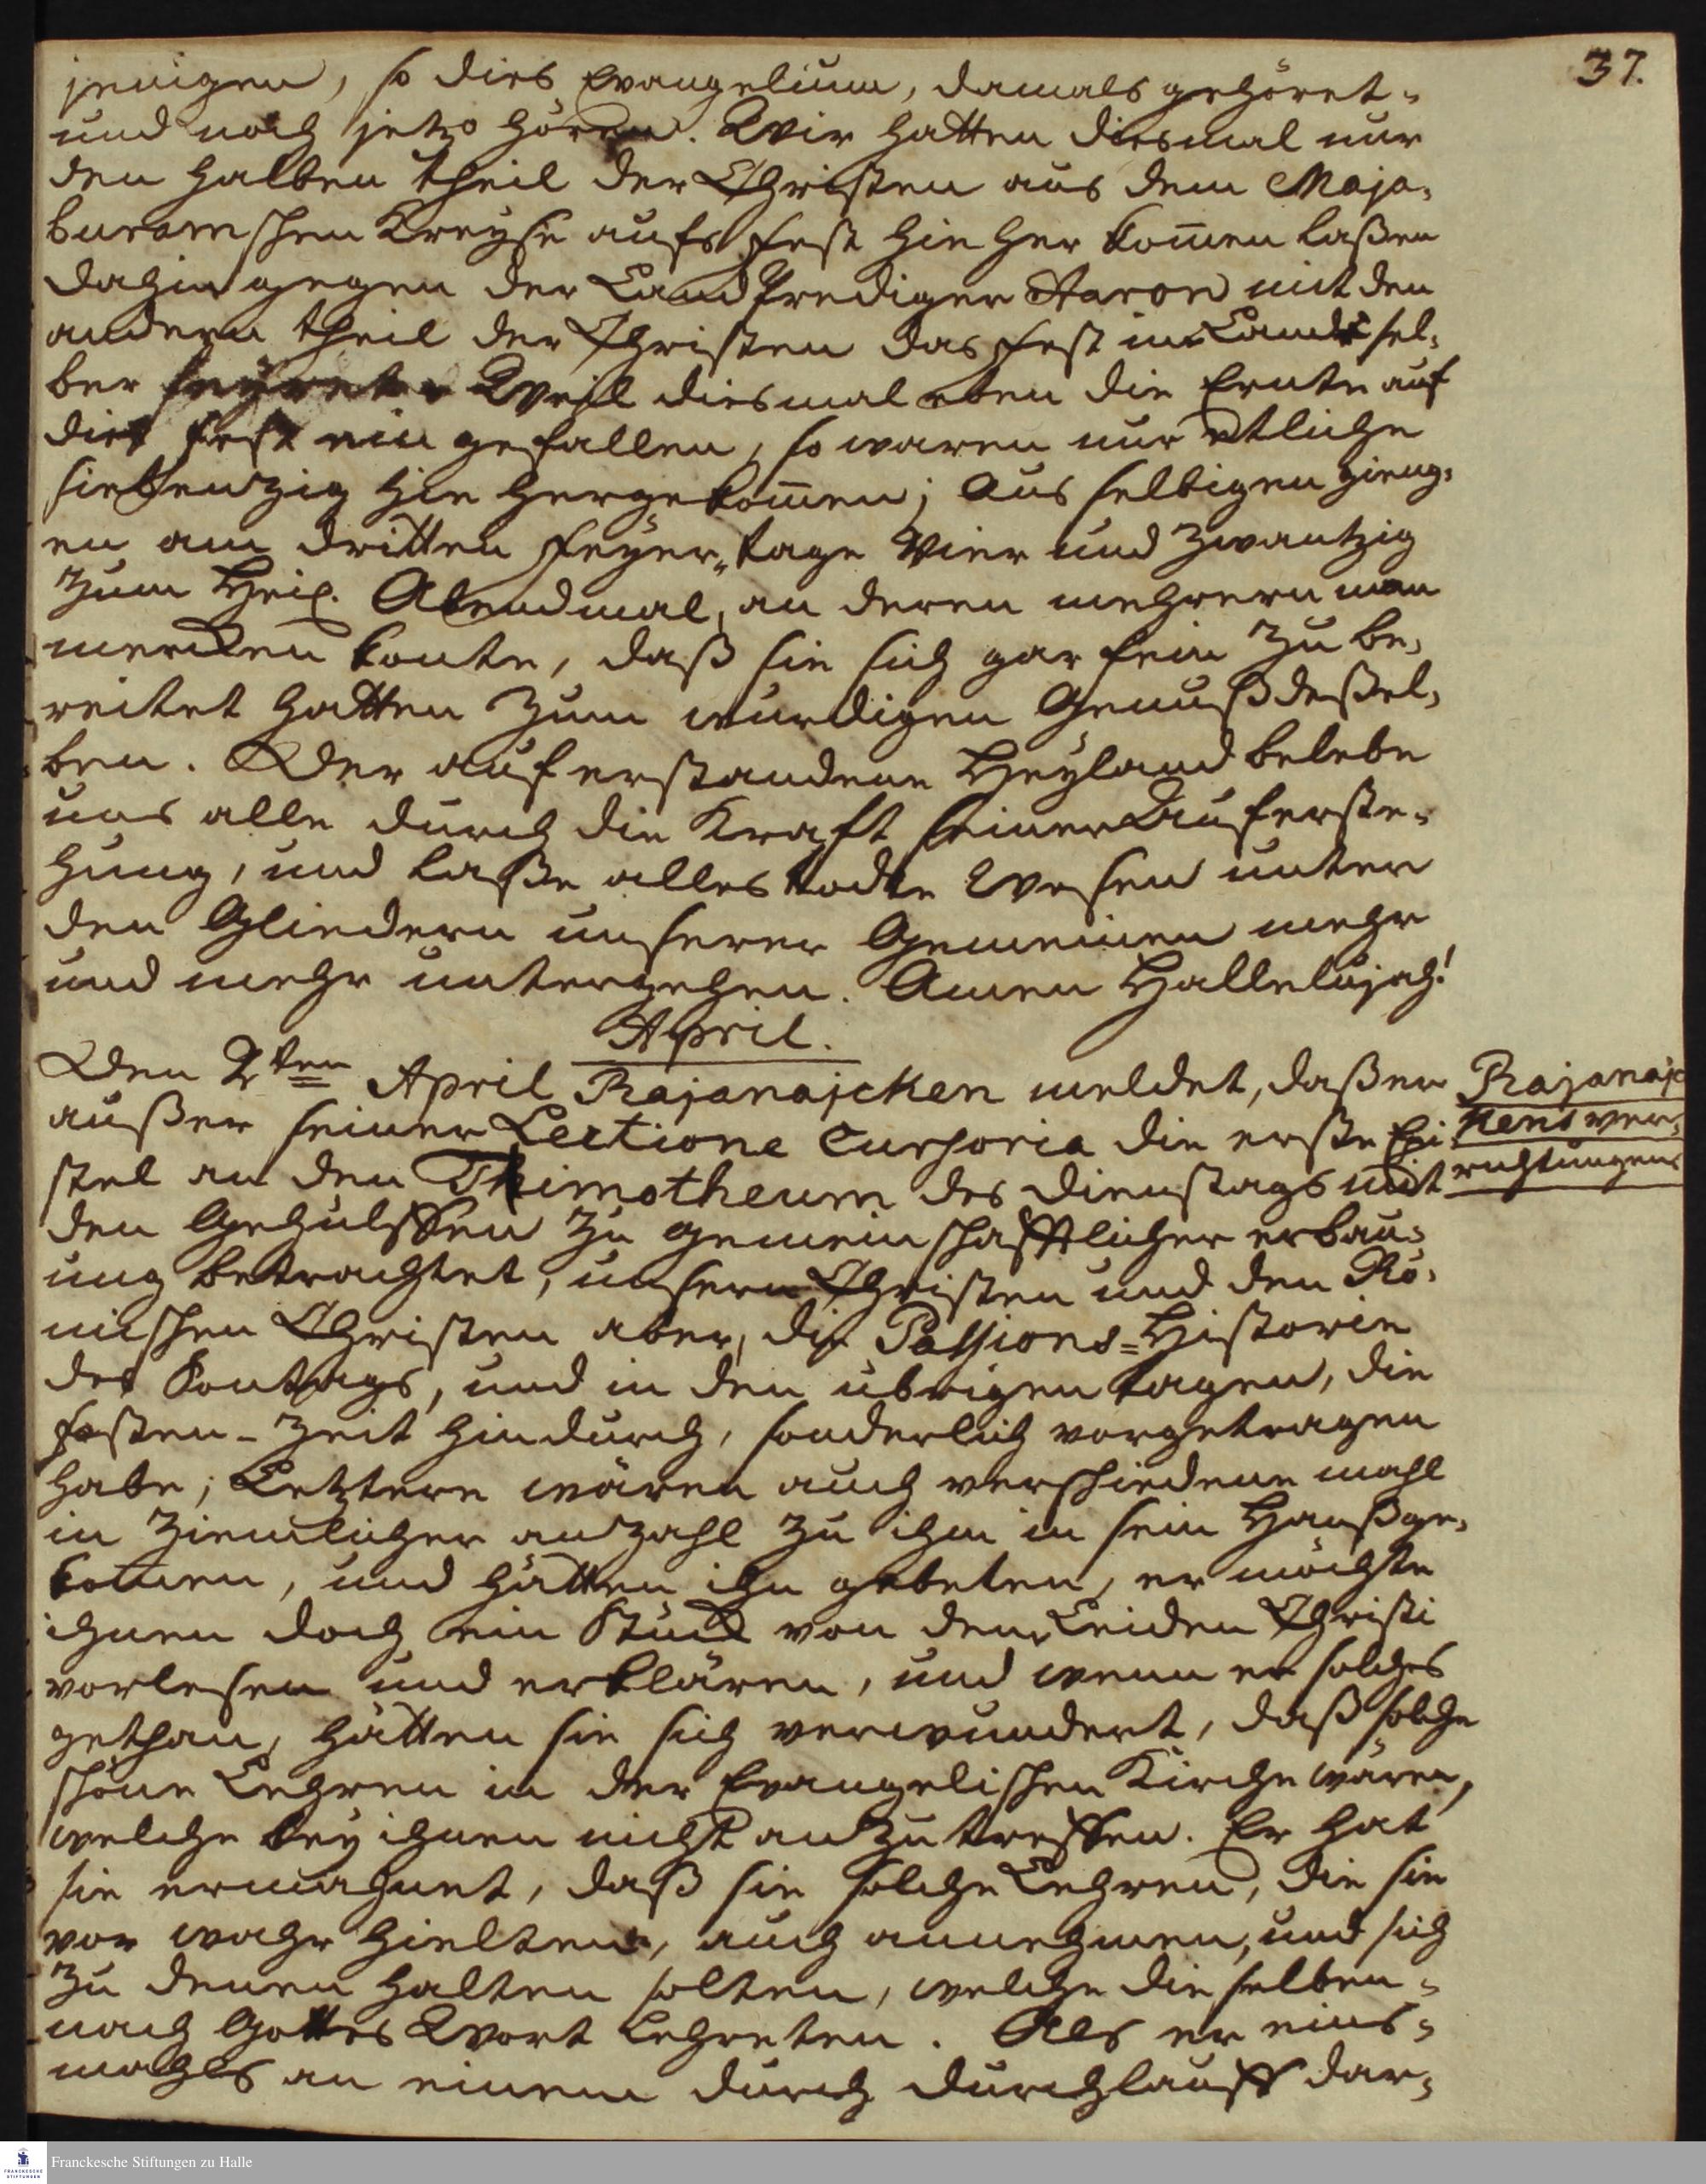 37.
jenigen, so dies Evangelium, damals gehöret-
und noch jetzo hören. Wir hatten diesmal nur
den halben theil der Christen aus dem Maja-
buramschen Kreyse aufs fest hieher kom̄en laßen
dahingegen der Landprediger Aaron mit den
andern theil der Christen das fest im Lande sel-
ber feyrete. Weil diesmal eben die Ernte auf
dies fest ein gefallen, so waren nur etliche
siebenzig hie hergekom̄en; Aus selbigen gieng-
en am dritten feyer-tage Vier und Zwantzig
zum Heil. Abendmal, an deren mehrern man
mercken konte, daß sie sich gar fein zube-
reitet hatten zum würdigen Genuß deßel-
ben. Der auferstandene Heyland belebe
uns alle durch die Krafft seiner Auferste-
hung, und laße alles todte Wesen unter
den Gliedern unserer Gemeinen mehr
und mehr untergehen. Amen Hallelujah!
April.
Den 2ten April Rajanajcken meldet, daß er
außer seiner Lectione Cursoria die erste Epi-
stel an den Thimotheum des Dienstags mit
den Gehülffen zu gemeinschafftlicher erbau-
ung betrachtet, unsern Christen und den Rö-
mischen Christen aber, die Passions-Historie
des Sontags, und in den übrigen tagen, die
fasten-Zeit hindurch, sonderlich vorgetragen
habe; Letztere wären auch verschiedene mahl
in Ziemlicher anzahl zu ihm in sein Hauß ge-
kommen, und hätten ihn gebeten, er möchte
ihnen doch ein Stück von dem Leiden Christi
vorlesen und erklären, und wenn er solches
gethan, hätten sie sich verwundert, daß solche
schöne Lehren in der Evangelischen Kirche wären,
welche bey ihnen nicht anzutreffen. Er hat
sie ermahnet, daß sie solche Lehren, die sie
vor wahr hielten, auch annehmen, und sich
zu denen halten solten, welche die selben-
nach Gottes Wort Lehreten. Als er eins-
mahls an einem durch Durchlauff dar-
Rajanajc
kens ver-
richtungen
Franckesche Stiftungen zu Halle